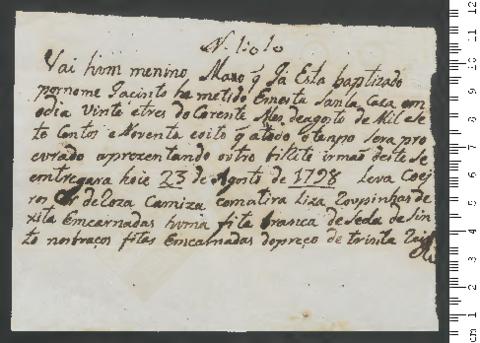 Vai hum menino, Maxo q̃ Ja Esta baptizado
por nome Jacinto he metido Em esta Santa Caza em
o dia Vinte e tres do Corente Mes de agosto de Mil e Se
te Centos e Noventa e oito q̃ a todo o tenpo Sera pro
curado aprezentando outro bilhete irmão deste Se
emtregara hoie 23 de Agosto de 1798 Leva Coej
ros de Camiza com a tira liza Roupinhas de
xita Emcarnadas huma fita branca de Seda de Sin
to nos braços fitas Emcarnadas do preço de trinta
cm 1 2 3 4 5 6 7 8 9 10 11 12